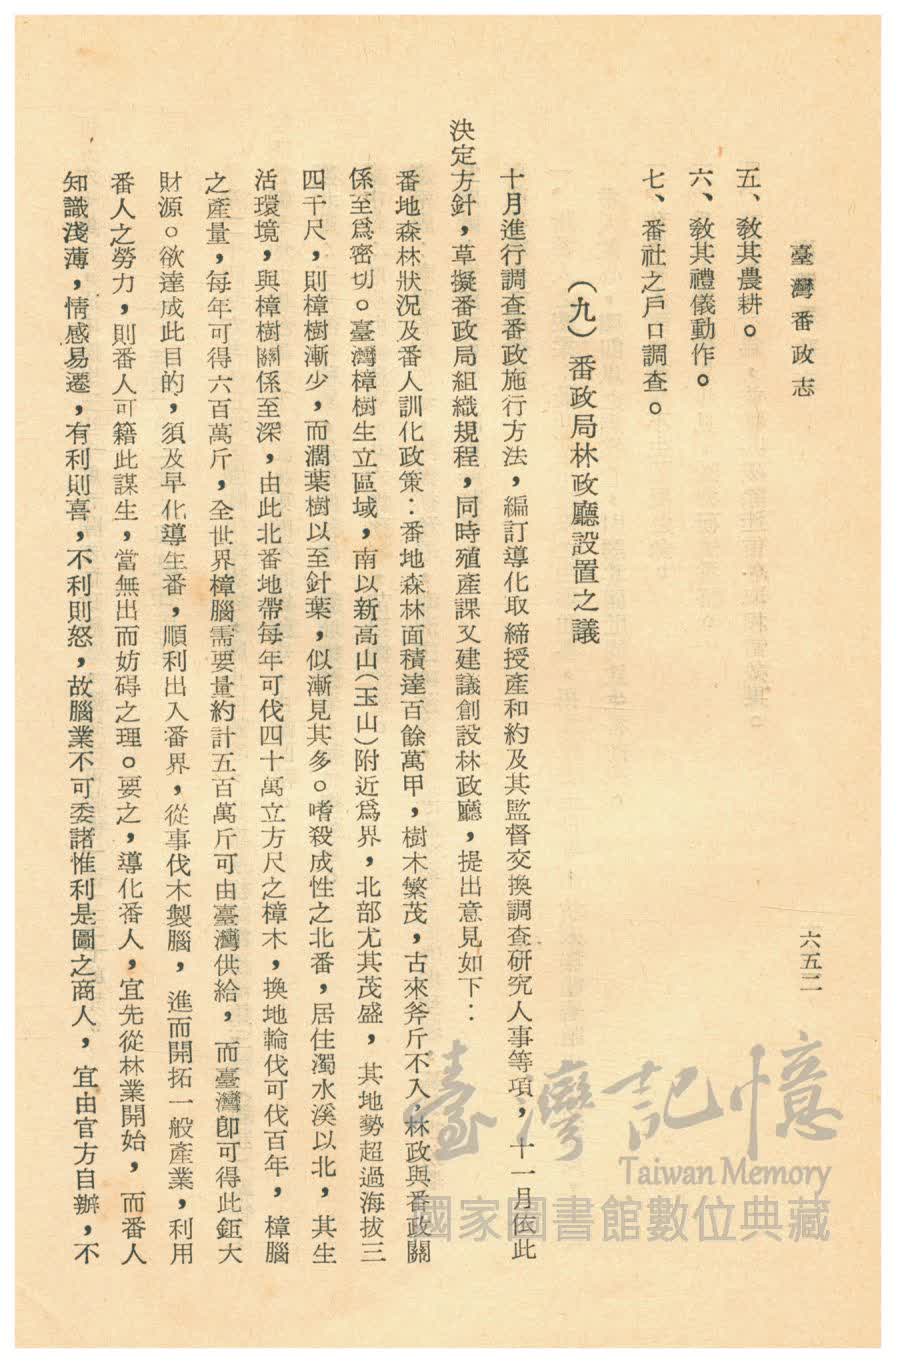 臺灣番政志
六五二
五、敎其農耕。
六、敎其禮儀動作。
七、番社之戶口調查。
（九）番政局林政廳設置之議
十月進行調查番政施行方法，編訂導化取締授產和約及其監督交換調查研究人事等項，十一月依此
決定方針，草擬番政局組織規程，同時殖產課又建議創設林政廳，提出意見如下：
番地森林狀況及番人訓化政策：番地森林面積達百餘萬甲，樹木繁茂，古來斧斤不入，林政與番政關
係至爲密切。臺灣樟樹生立區域，南以新高山（玉山）附近爲界，北部尤其茂盛，其地勢超過海拔三
四千尺，則樟樹漸少，而濶葉樹以至針葉，似漸見其多。嗜殺成性之北番，居住濁水溪以北，其生
活環境，與樟樹關係至深，由此北番地帶每年可伐四十萬立方尺之樟木，換地輪伐可伐百年，樟腦
之產量，每年可得六百萬斤，全世界樟腦需要量約計五百萬斤可由臺灣供給，而臺灣卽可得此鉅大
財源。欲達成此目的，須及早化導生番，順利出入番界，從事伐木製腦，進而開拓一般產業，利用
番人之勞力，則番人可籍此謀生，當無出而妨碍之理。要之，導化番人，宜先從林業開始，而番人
知識淺薄，情感易遷，有利則喜，不利則怒，故腦業不可委諸惟利是圖之商人，宜由官方自辦，不
臺灣記憶
Taiwan Memory
國家圖書館數位典藏